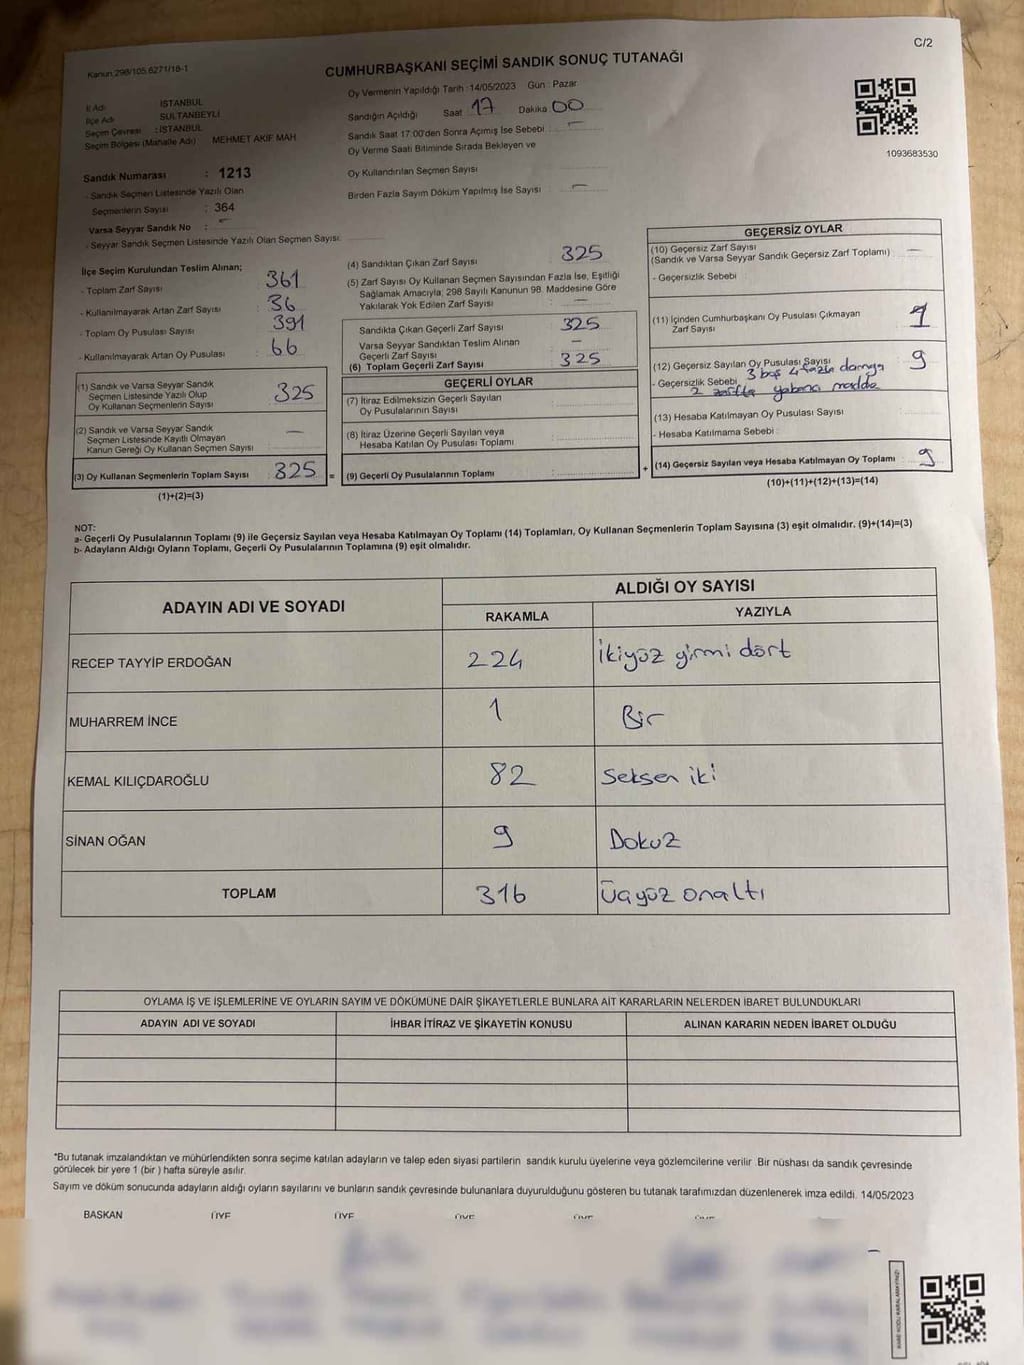 C/2
Kanun 298/105.6271/18-1
CUMHURBAŞKANI SEÇİMİ SANDIK SONUÇ TUTANAĞI
İl Adı : İSTANBUL
İlçe Adı SULTANBEYLİ
Seçim Çevresi : İSTANBUL
Seçim Bölgesi (Mahalle Adı) MEHMET AKİF MAH
Sandık Numarası : 1213
- Sandık Seçmen Listesinde Yazılı Olan
Seçmenlerin Sayısı : 364
Varsa Seyyar Sandık No : -
- Seyyar Sandık Seçmen Listesinde Yazılı Olan Seçmen Sayısı:
Oy Vermenin Yapıldığı Tarih : 14/05/2023 Gün : Pazar
Sandığın Açıldığı Saat 17 Dakika 00
Sandık Saat 17:00'den Sonra Açımış İse Sebebi : -
Oy Verme Saati Bitiminde Sırada Bekleyen ve
Oy Kullandırılan Seçmen Sayısı
Birden Fazla Sayım Döküm Yapılmış İse Sayısı : -
1093683530
İlçe Seçim Kurulundan Teslim Alınan;
- Toplam Zarf Sayısı : 361
- Kullanılmayarak Artan Zarf Sayısı : 36
- Toplam Oy Pusulası Sayısı : 391
- Kullanılmayarak Artan Oy Pusulası : 66
(1) Sandık ve Varsa Seyyar Sandık
Seçmen Listesinde Yazılı Olup
Oy Kullanan Seçmenlerin Sayısı : 325
(2) Sandık ve Varsa Seyyar Sandık
Seçmen Listesinde Kayıtlı Olmayan
Kanun Gereği Oy Kullanan Seçmen Sayısı : -
(3) Oy Kullanan Seçmenlerin Toplam Sayısı : 325 =
(1)+(2)=(3)
(4) Sandıktan Çıkan Zarf Sayısı : 325
(5) Zarf Sayısı Oy Kullanan Seçmen Sayısından Fazla İse, Eşitliği
Sağlamak Amacıyla; 298 Sayılı Kanunun 98. Maddesine Göre
Yakılarak Yok Edilen Zarf Sayısı : -
Sandıkta Çıkan Geçerli Zarf Sayısı : 325
Varsa Seyyar Sandıktan Teslim Alınan
Geçerli Zarf Sayısı : -
(6) Toplam Geçerli Zarf Sayısı : 325
GEÇERLİ OYLAR
(7) İtiraz Edilmeksizin Geçerli Sayılan
Oy Pusulalarının Sayısı :
(8) İtiraz Üzerine Geçerli Sayılan veya
Hesaba Katılan Oy Pusulası Toplamı :
(9) Geçerli Oy Pusulalarının Toplamı : +
GEÇERSİZ OYLAR
(10) Geçersiz Zarf Sayısı
(Sandık ve Varsa Seyyar Sandık Geçersiz Zarf Toplamı) : -
- Geçersizlik Sebebi :
(11) İçinden Cumhurbaşkanı Oy Pusulası Çıkmayan
Zarf Sayısı
(12) Geçersiz Sayılan Oy Pusulası Sayısı : 9
- Geçersizlik Sebebi 3 boş 4 fazla damga
2 zarfta yabancı madde
(13) Hesaba Katılmayan Oy Pusulası Sayısı :
- Hesaba Katılmama Sebebi :
(14) Geçersiz Sayılan veya Hesaba Katılmayan Oy Toplamı : 9
(10)+(11)+(12)+(13)=(14)
NOT:
a- Geçerli Oy Pusulalarının Toplamı (9) ile Geçersiz Sayılan veya Hesaba Katılmayan Oy Toplamı (14) Toplamları, Oy Kullanan Seçmenlerin Toplam Sayısına (3) eşit olmalıdır. (9)+(14)=(3)
b- Adayların Aldığı Oyların Toplamı, Geçerli Oy Pusulalarının Toplamına (9) eşit olmalıdır.
ADAYIN ADI VE SOYADI
ALDIĞI OY SAYISI
RAKAMLA YAZIYLA
RECEP TAYYİP ERDOĞAN 224 İkiyüz yirmi dört
MUHARREM İNCE 1 Bir
KEMAL KILIÇDAROĞLU 82 Seksen iki
SİNAN OĞAN 9 Dokuz
TOPLAM 316 Üçyüz onaltı
OYLAMA İŞ VE İŞLEMLERİNE VE OYLARIN SAYIM VE DÖKÜMÜNE DAİR ŞİKAYETLERLE BUNLARA AİT KARARLARIN NELERDEN İBARET BULUNDUKLARI
ADAYIN ADI VE SOYADI İHBAR İTİRAZ VE ŞİKAYETİN KONUSU ALINAN KARARIN NEDEN İBARET OLDUĞU
*Bu tutanak imzalandıktan ve mühürlendikten sonra seçime katılan adayların ve talep eden siyasi partilerin sandık kurulu üyelerine veya gözlemcilerine verilir. Bir nüshası da sandık çevresinde
görülecek bir yere 1 (bir ) hafta süreyle asılır.
Sayım ve döküm sonucunda adayların aldığı oyların sayılarını ve bunların sandık çevresinde bulunanlara duyurulduğunu gösteren bu tutanak tarafımızdan düzenlenerek imza edildi. 14/05/2023
BAŞKAN ÜYE ÜYE ÜYE ÜYE ÜYE